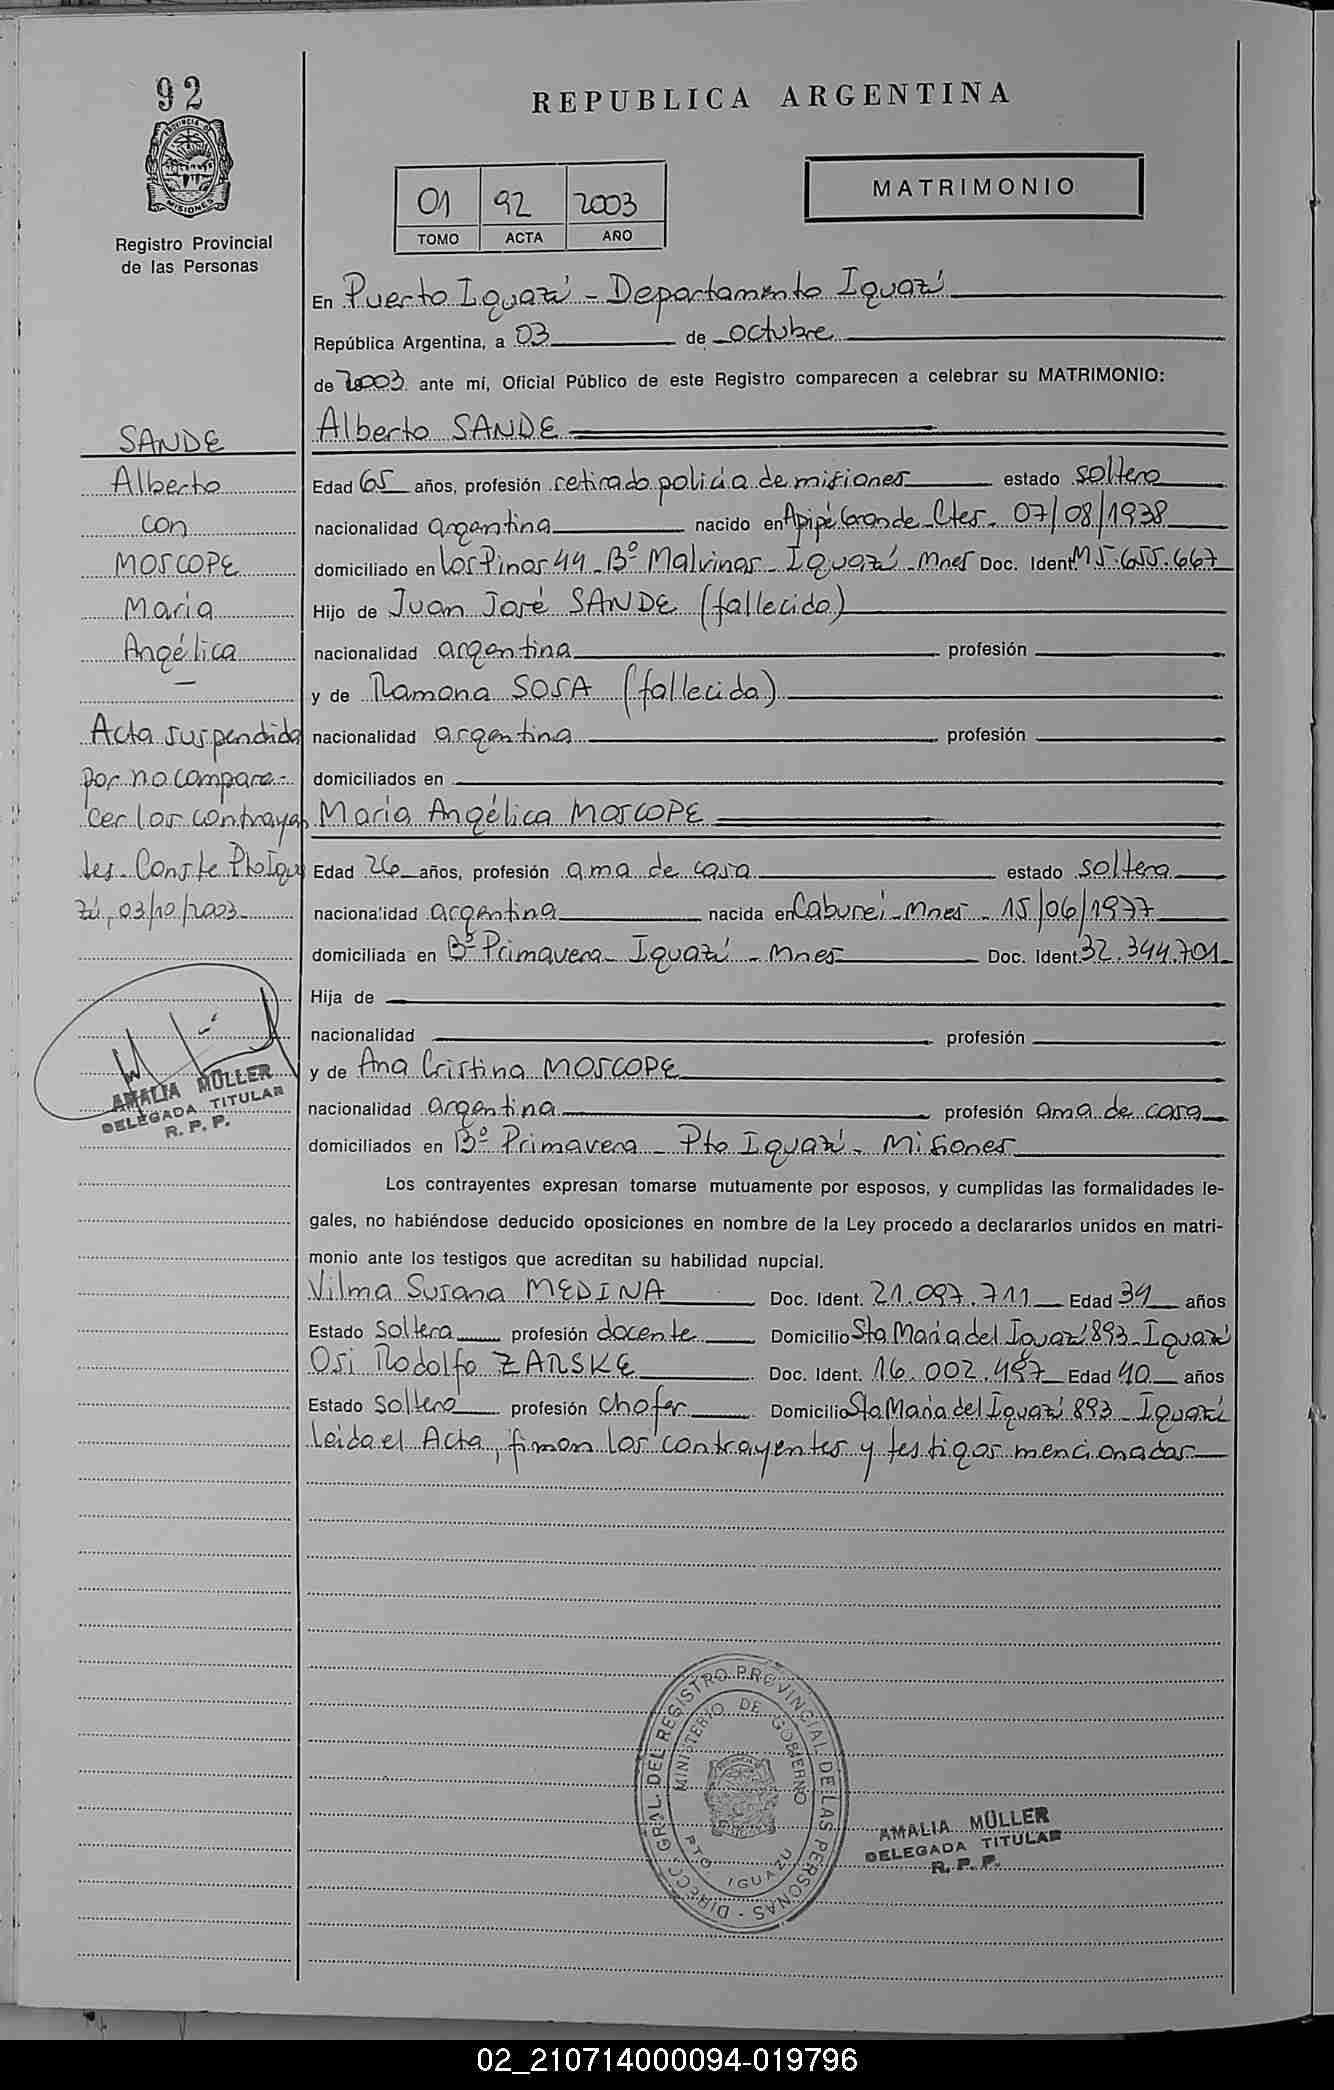 92
PROVINCIA DE MISIONES
Registro Provincial
de las Personas
REPUBLICA ARGENTINA
01 92 2003
TOMO ACTA AÑO
MATRIMONIO
En Puerto Iguazú - Departamento Iguazú
República Argentina, a 03 de octubre
de 2003 ante mí, Oficial Público de este Registro comparecen a celebrar su MATRIMONIO:
Alberto SANDE
Edad 65 años, profesión retirado policía de misiones estado soltero
nacionalidad argentina nacido en Apipé Grande - Ctes - 07/08/1938
domiciliado en Los Pinos 44 - Bº Malvinas - Iguazú - Mnes Doc. Ident. M5.655.667
Hijo de Juan José SANDE (fallecido)
nacionalidad argentina profesión
y de Ramona SOSA (fallecida)
nacionalidad argentina profesión
domiciliados en
María Angélica MOSCOPE
Edad 26 años, profesión ama de casa estado soltera
nacionalidad argentina nacida en Caburei - Mnes - 15/06/1977
domiciliada en Bº Primavera - Iguazú - Mnes Doc. Ident. 32.344.701
Hija de
nacionalidad profesión
y de Ana Cristina MOSCOPE
nacionalidad argentina profesión ama de casa
domiciliados en Bº Primavera - Pto Iguazú - Misiones
Los contrayentes expresan tomarse mutuamente por esposos, y cumplidas las formalidades le-
gales, no habiéndose deducido oposiciones en nombre de la Ley procedo a declararlos unidos en matri-
monio ante los testigos que acreditan su habilidad nupcial.
Vilma Susana MEDINA Doc. Ident. 21.097.711 Edad 34 años
Estado soltera profesión docente Domicilio Sta María del Iguazú 893 - Iguazú
Osi Rodolfo ZARSKE Doc. Ident. 16.002.497 Edad 40 años
Estado soltero profesión chofer Domicilio Sta María del Iguazú 893 - Iguazú
Leida el Acta, firman los contrayentes y testigos mencionados
SANDE
Alberto
con
MOSCOPE
María
Angélica
Acta suspendida
por no compare-
cer los contrayen
tes. Conste Pto Igua
zú, 03/10/2003
AMALIA MÜLLER
DELEGADA TITULAR
R. P. P.
DIRECC. GRAL. DEL REGISTRO PROVINCIAL DE LAS PERSONAS -
MINISTERIO DE GOBIERNO
PTO. IGUAZU
AMALIA MÜLLER
DELEGADA TITULAR
R. P. P.
02_210714000094-019796